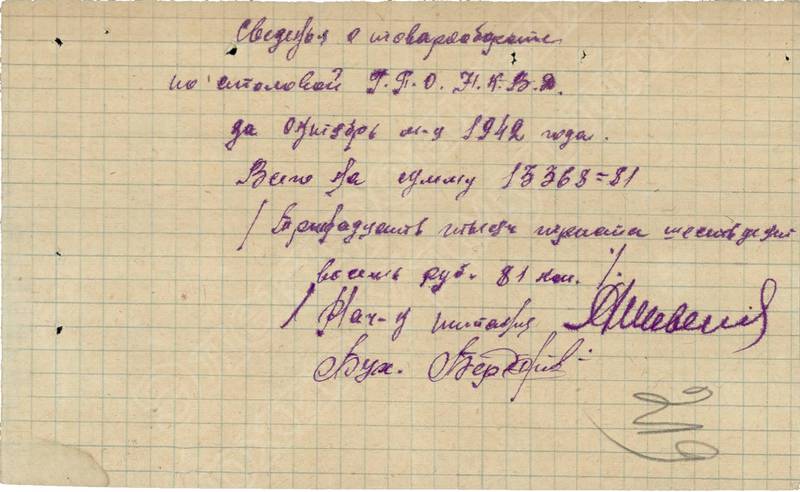 Сведенья о товарообороте
по столовой Г.Г.О. Н.К.В.Д.
за Октябрь м-ц 1942 года.
Всего на сумму 13368=81
/ Тринадцать тысяч триста шестьдесят
восемь руб. 81 коп. /.
/ Нач-к питания
Бух.
219